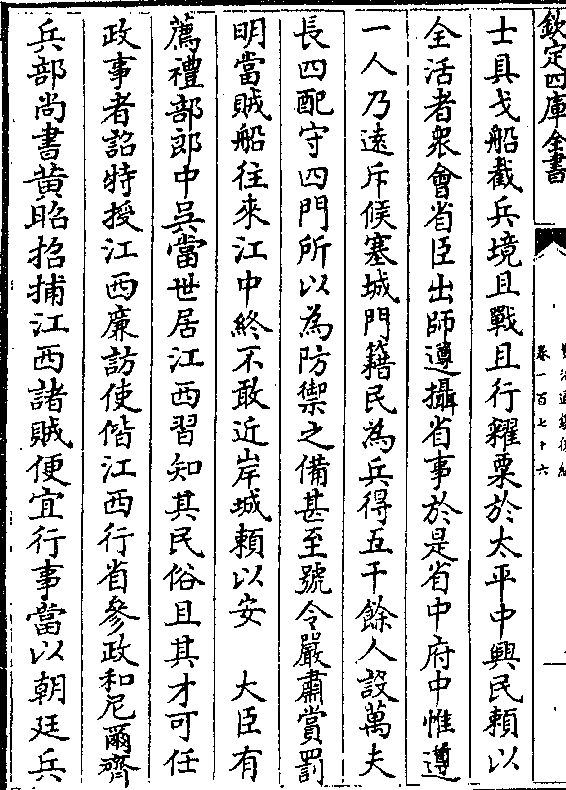 欽定四庫全書
卷一百七十六
士具戈船截兵境且戰且行糴粟於太平中興民賴以
全活者衆會省臣出師遵攝省事於是省中府中惟遵
一人乃遠斥候塞城門籍民為兵得五千餘人設萬夫
長四配守四門所以為防禦之備甚至號令嚴肅賞罰
明當賊船往來江中終不敢近岸城賴以安　大臣有
薦禮部郎中吳當世居江西習知其民俗且其才可任
政事者詔特授江西廉訪使偕江西行省參政和尼爾齊
兵部尚書黄昭招捕江西諸賊便宜行事當以朝廷兵